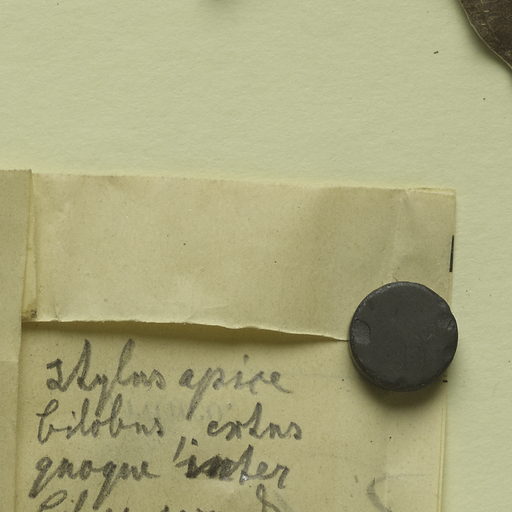 stylus apice
bilobus extus
quoque inter